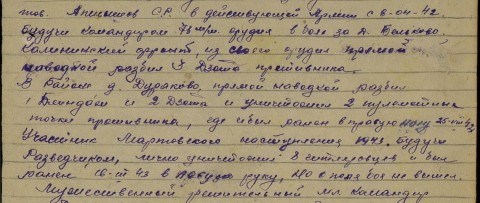 тов. Апецышов С.Р. в действующей Армии с 6-04-42.
будучи командиром 76 м/м. орудия в боях за д.
Калининский фронт, из своего орудия прямой
наводкой разбил 3 Дзота противника.
В Районе д. Дураково, прямой наводкой разбил
1 Блиндаж и 2 Дзота и уничтожил 2 пулеметные
точки противника, где и был ранен в правую ногу 25-VIII 42
Участник Мартовского наступления 1943. будучи
Разведчиком, лично уничтожил 8 гитлеровцев и был
ранен 16-III 43 в левую руку, но с поля боя не вышел.
Мужественный решительный мл. командир